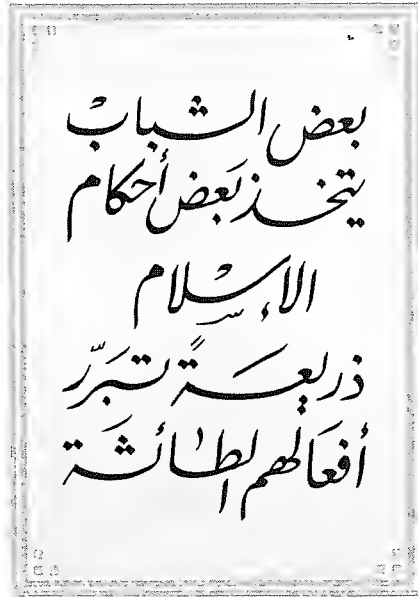 بعض الشباب
يتخذ بَعض أحكام
الإسلام
ذريعةً تبَرّر
أفعَالهم الطائشَة